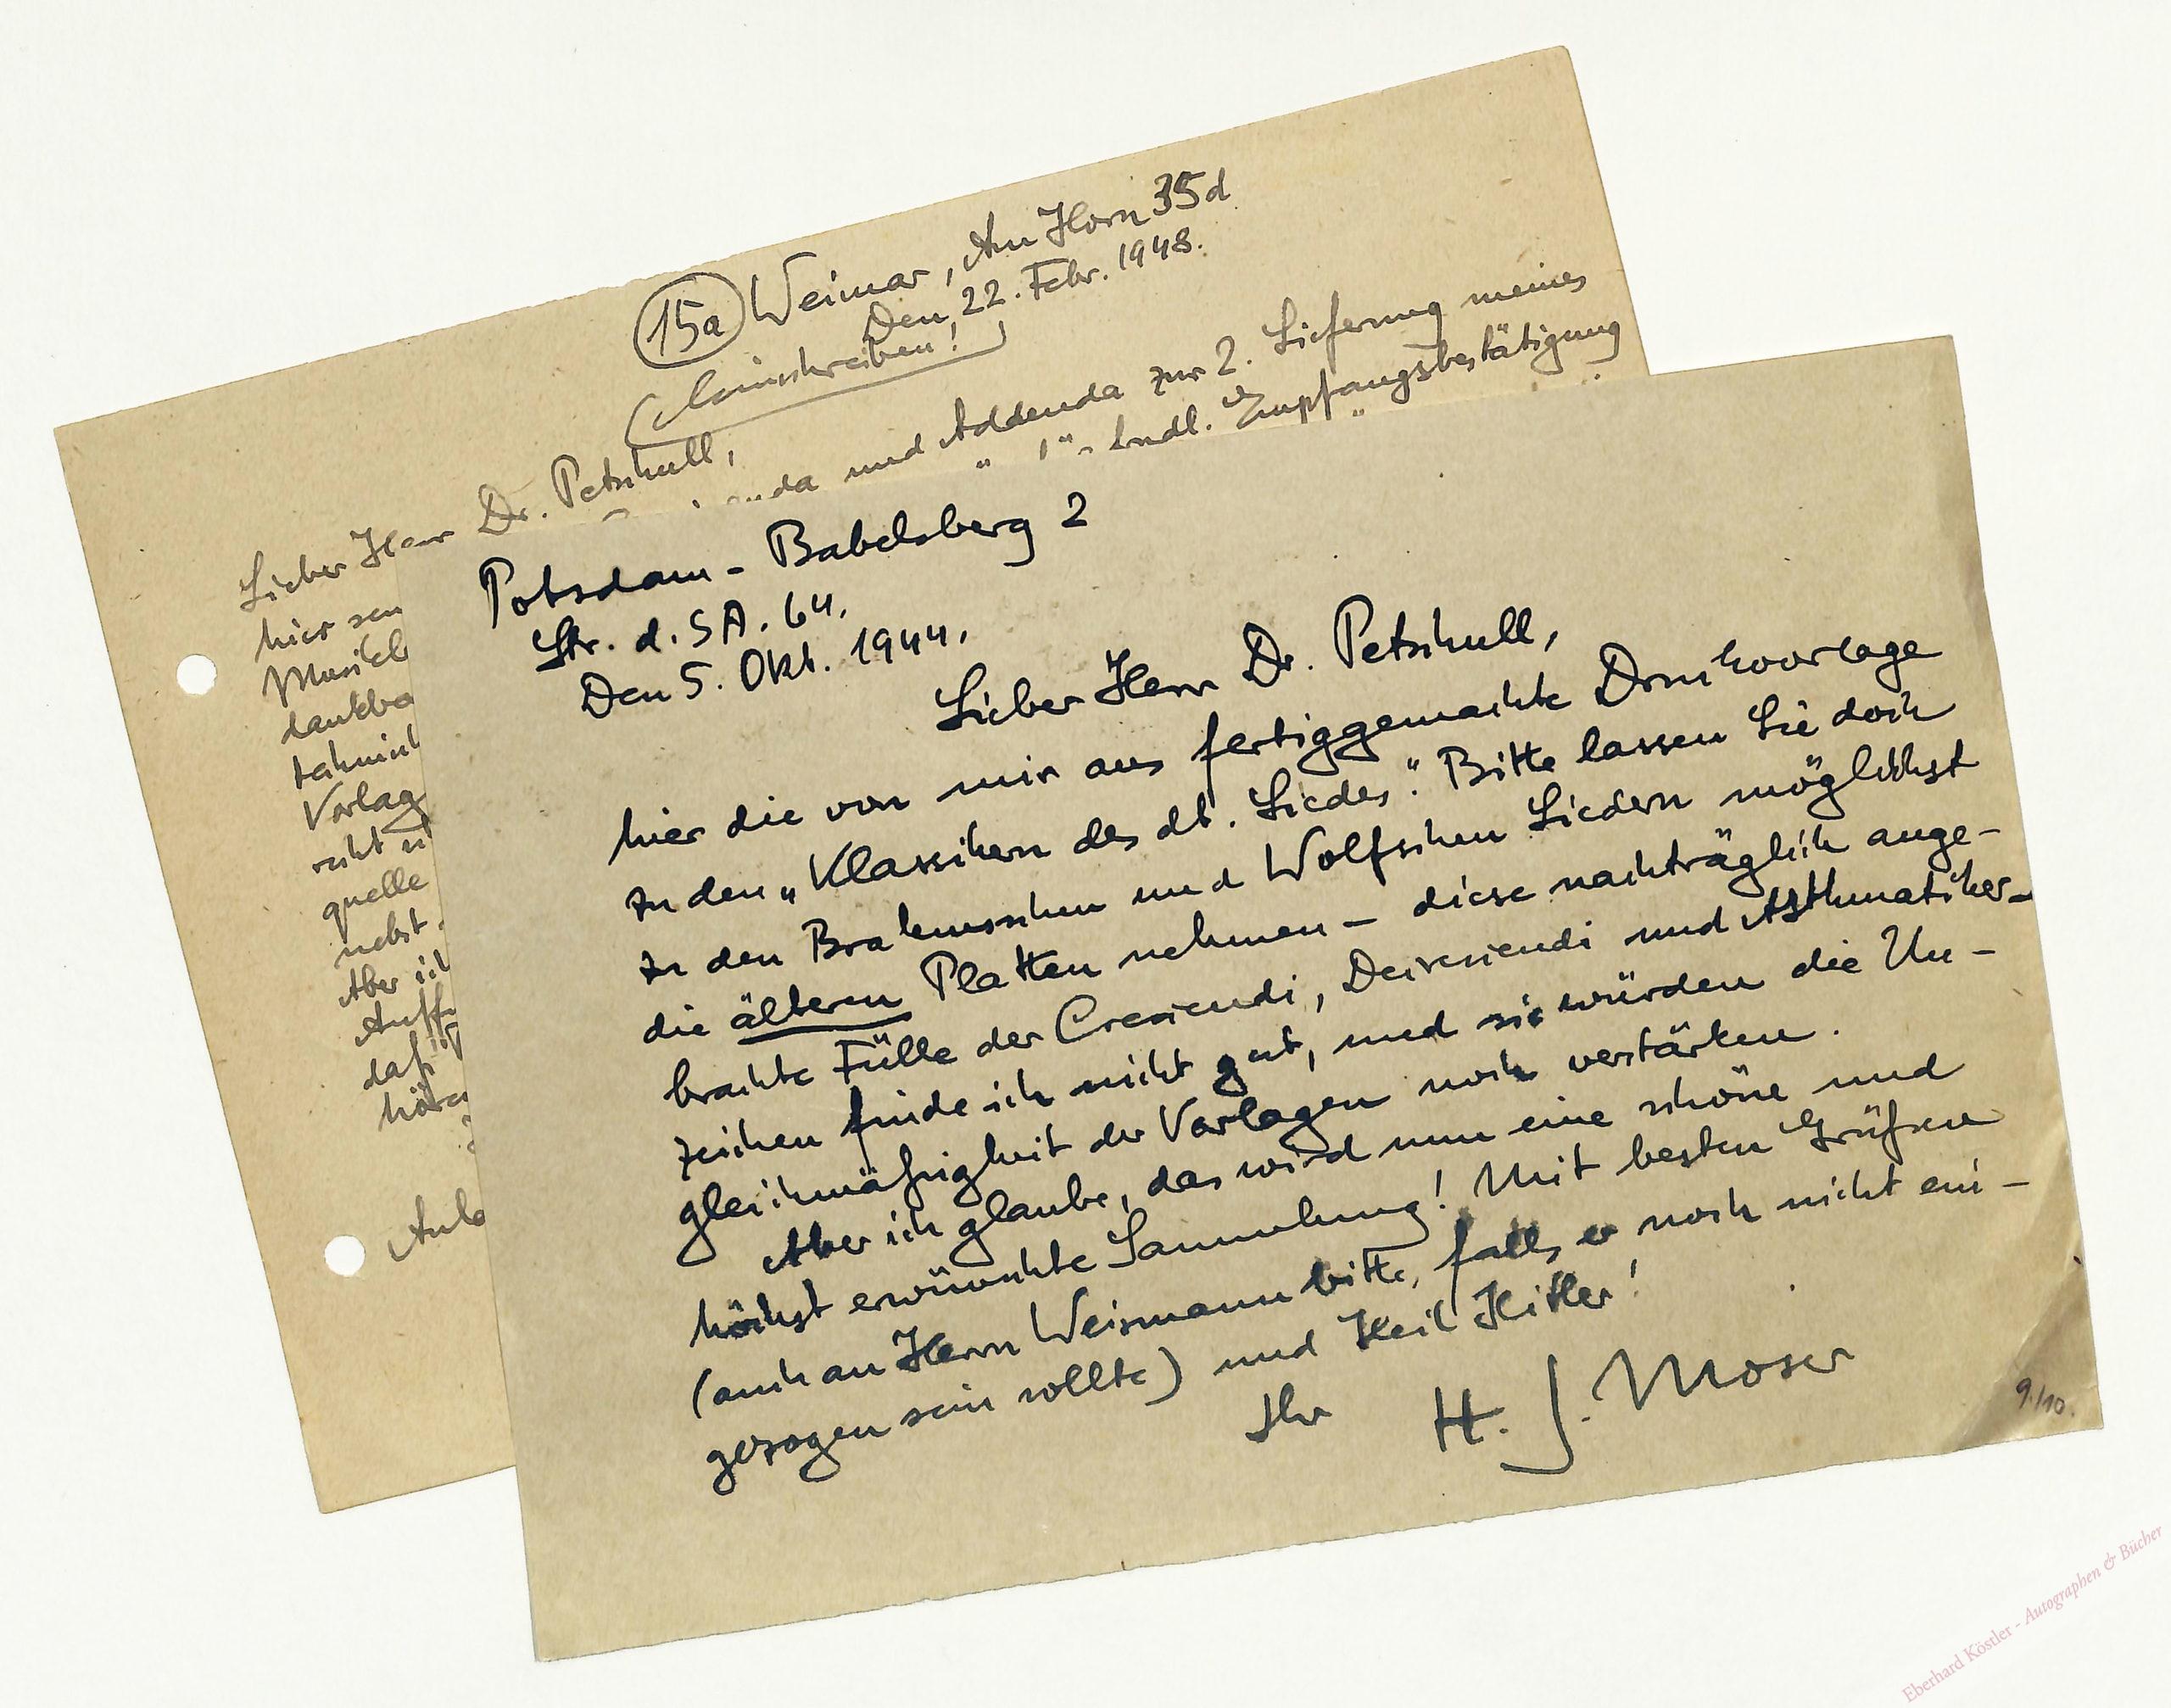 15a Weimar, Am Horn 35d
Den 22. Febr. 1948.
Einschreiben!
Lieber Herr Dr. Petschull,
und Addenda zur 2. Lieferung meines
" 1" Empfangsbestätigung
hier sen
Musikl
dankba
Vorlag
quelle
nebst
Aber ich
daß
Potsdam-Babelsberg 2
Str. d. SA. 64.
Den 5. Okt. 1944.
Lieber Herr Dr. Petschull,
hier die von mir aus fertiggemachte Druckvorlage
zu den „Klassikern des dt. Liedes". Bitte lassen Sie doch
zu den Brahmsschen und Wolfschen Liedern möglichst
die älteren Platten nehmen – diese nachträglich ange-
brachte Fülle der Crescendi, Decrescendi und Asthmatiker-
zeichen finde ich nicht gut, und sie würden die Un-
gleichmäßigkeit der Vorlagen noch verstärken.
Aber ich glaube, das wird nun eine schöne und
höchst erwünschte Sammlung! Mit besten Grüßen
(auch an Herrn Weismann bitte, falls er noch nicht ein-
gezogen sein sollte) und Heil Hitler!
Ihr H. J. Moser
9./10.
Eberhard Köstler - Autographen & Bücher